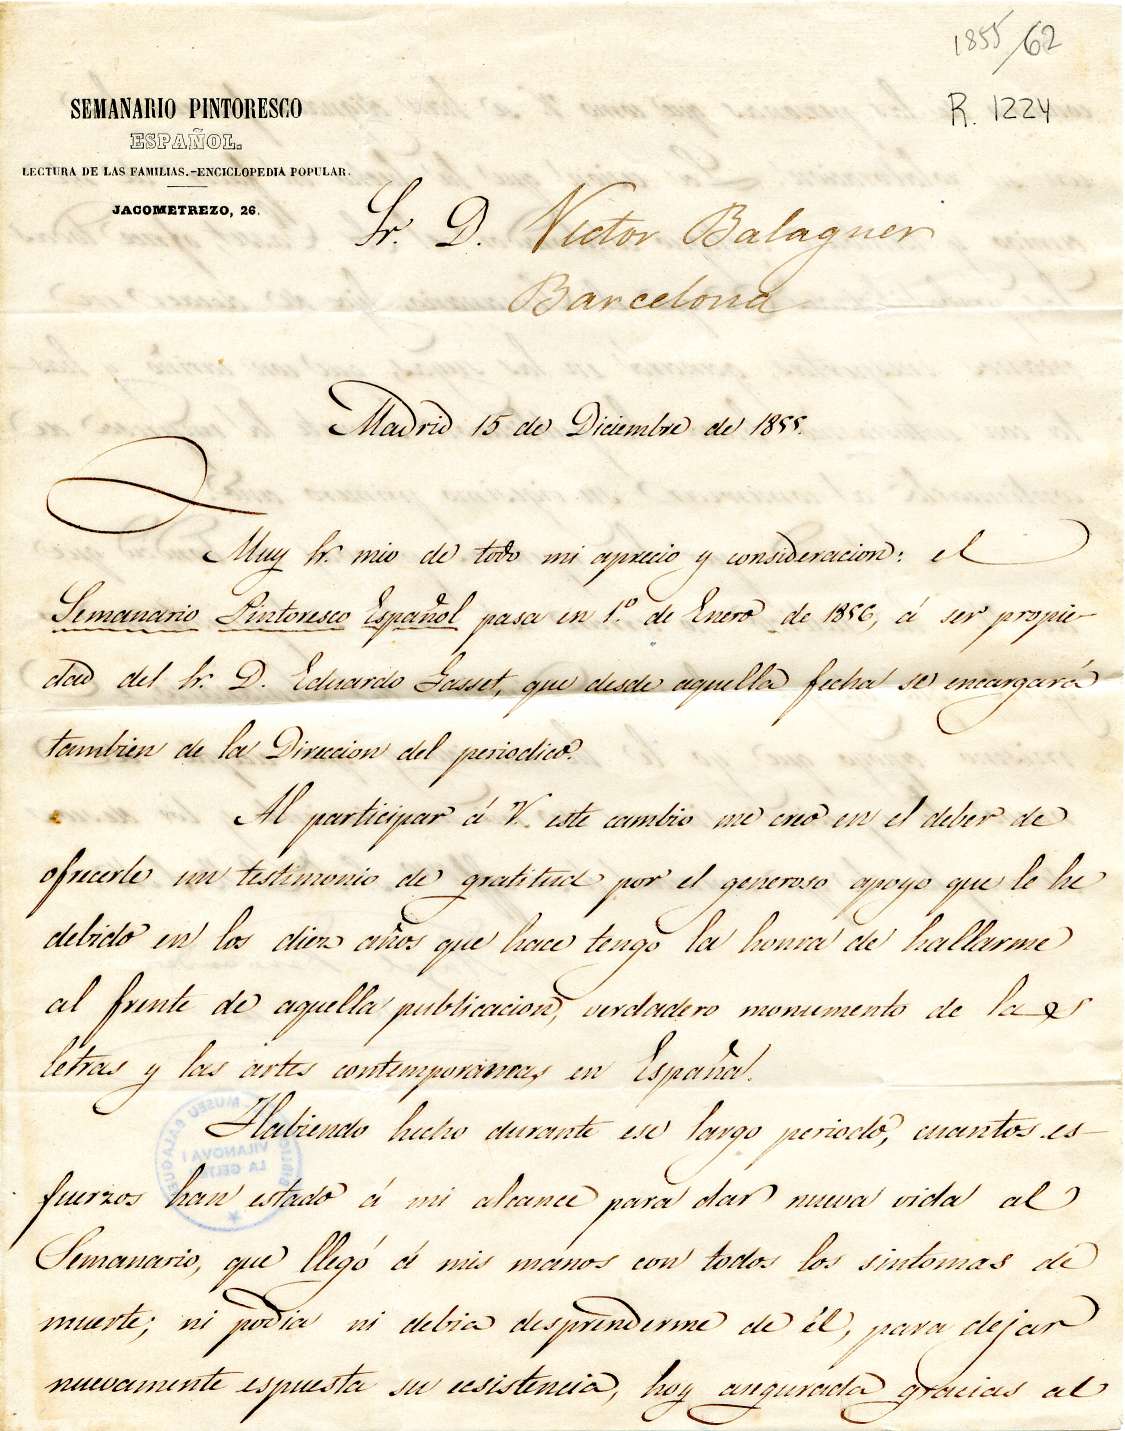 1855/62
R. 1224
SEMANARIO PINTORESCO
ESPAÑOL.
LECTURA DE LAS FAMILIAS.-ENCICLOPEDIA POPULAR.
JACOMETREZO, 26.
Sr. D. Victor Balaguer
Barcelona
Madrid 15 de Diciembre de 1855.
Muy Sr. mio de todo mi aprecio y consideracion: el
Semanario Pintoresco Español pasa en 1.º de Enero de 1856, á ser propie-
dad del Sr. D. Eduardo Gasset, que desde aquella fecha se encargará
tambien de la Direccion del periodico.
Al participar á V. este cambio me creo en el deber de
ofrecerle un testimonio de gratitud por el generoso apoyo que le he
debido en los diez años que hace tengo la honra de hallarme
al frente de aquella publicacion, verdadero monumento de las
letras y las artes contemporaneas en España.
Habiendo hecho durante ese largo periodo, cuantos es-
fuerzos han estado á mi alcance para dar nueva vida al
Semanario, que llegó á mis manos con todos los sintomas de
muerte; ni podia ni debia desprenderme de él, para dejar
nuevamente espuesta su ecsistencia, hoy asegurada gracias al
MUSEU BALAGUER
VILANOVA I
LA GELTRÚ